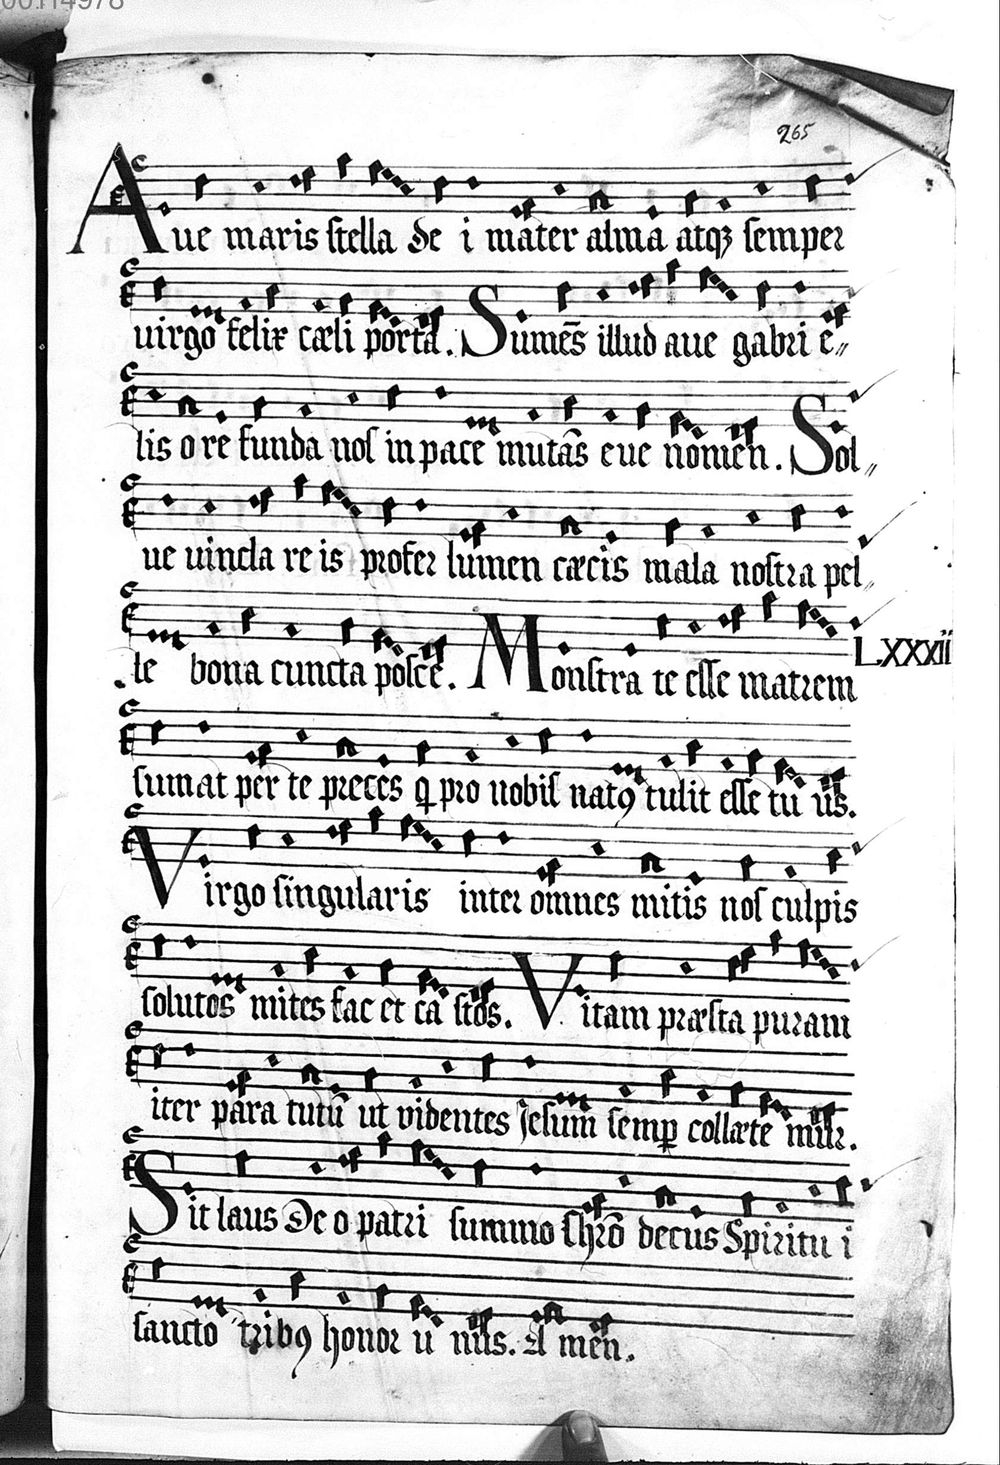 265
Aue maris stella de i mater alma atqꝫ semper
uirgo felix cæli porta. Sumēs illud aue gabri e„
lis o re funda nos in pace mutās eue nomen. Sol„
ue uincla re is profer lumen cæcis mala nostra pel„
le bona cuncta posce. Monstra te esse matrem
LXXXii
sumat per te preces q pro nobis natꝯ tulit esse tu us.
Virgo singularis inter omnes mitis nos culpis
solutos mites fac et ca stos. Vitam præsta puram
iter para tutū ut videntes Jesum semꝑ collæte mur.
Sit laus De o patri summo chrō decus Spiritu i
sancto tribꝯ honor u nus. A men.